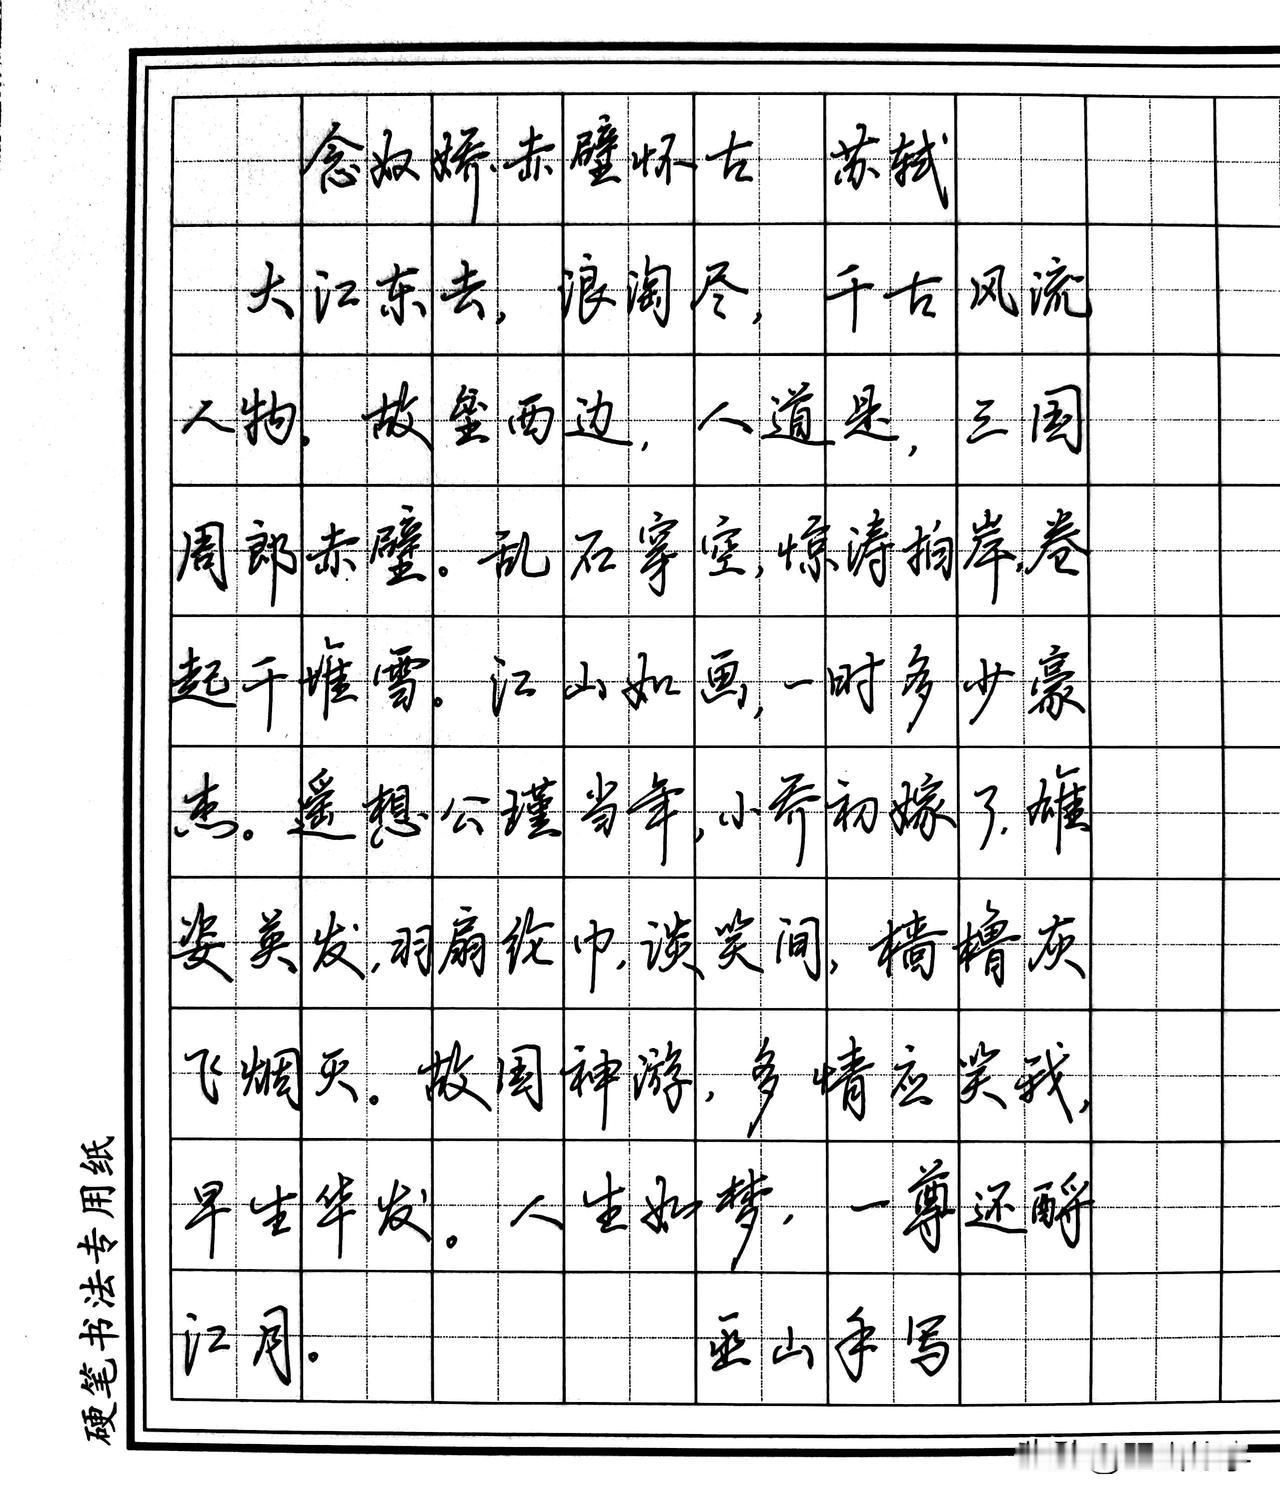 念奴娇·赤壁怀古 苏轼
大江东去，浪淘尽，千古风流
人物。故垒西边，人道是，三国
周郎赤壁。乱石穿空，惊涛拍岸，卷
起千堆雪。江山如画，一时多少豪
杰。遥想公瑾当年，小乔初嫁了，雄
姿英发，羽扇纶巾，谈笑间，樯橹灰
飞烟灭。故国神游，多情应笑我，
早生华发。人生如梦，一尊还酹
江月。 巫山手写
硬笔书法专用纸